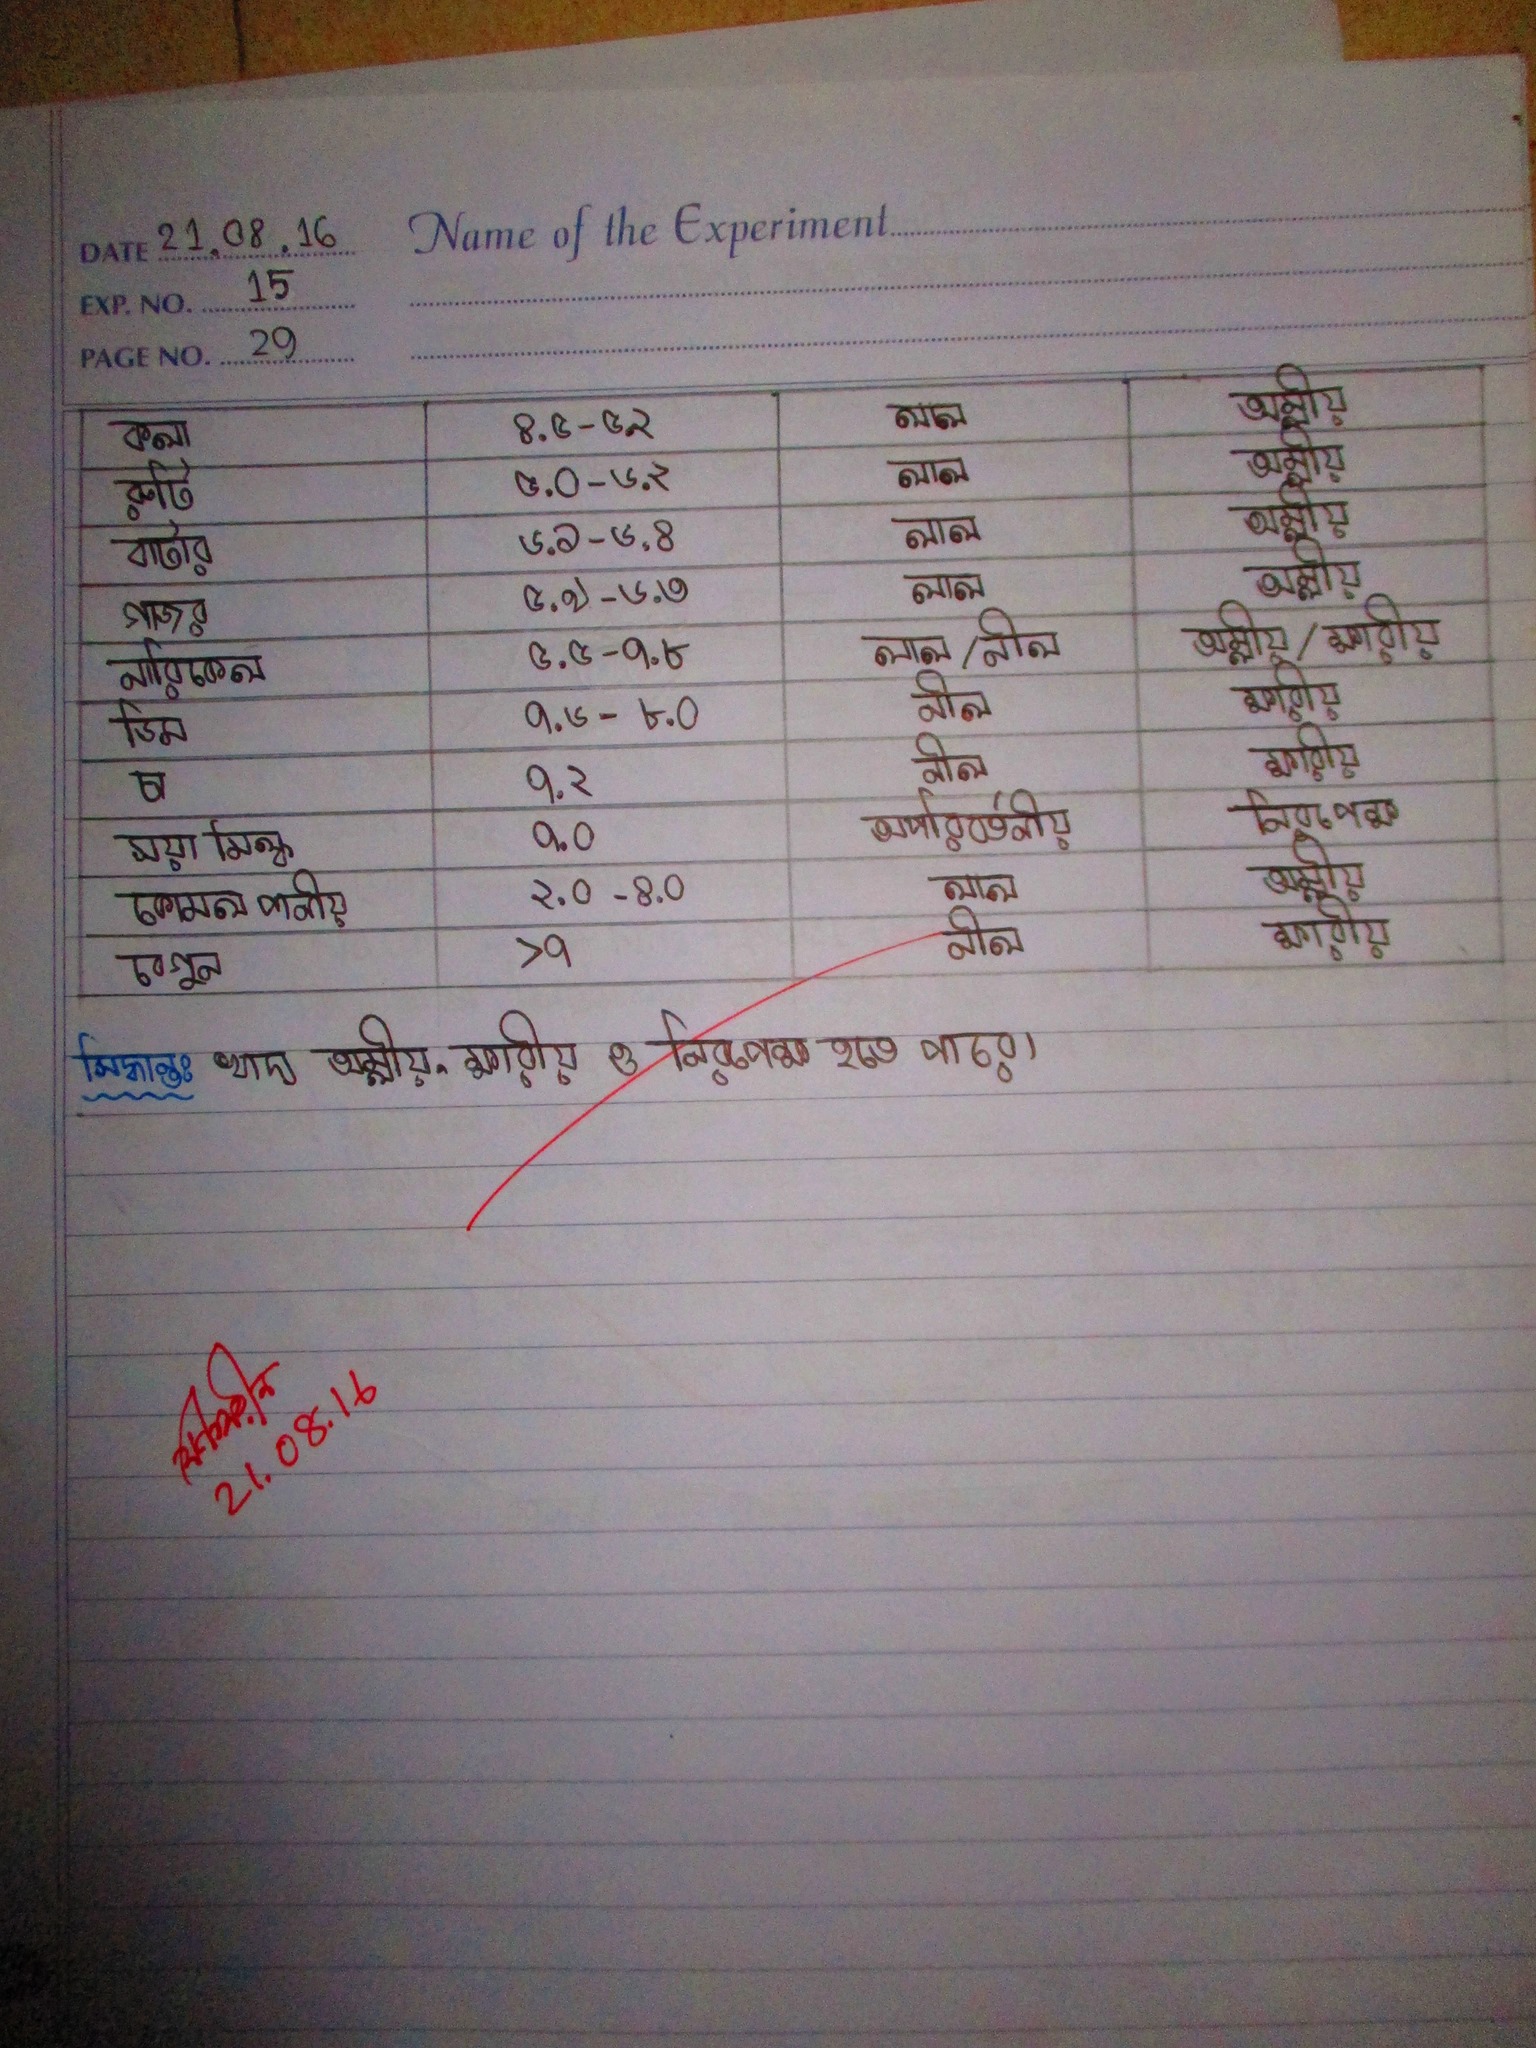 DATE 21.08.16 Name of the Experiment
EXP. NO. 15
PAGE NO. 29
কলা ৪.৫-৫.২ লাল অম্লীয়
রুটি ৫.০-৬.২ লাল অম্লীয়
বাটার ৬.১-৬.৪ লাল অম্লীয়
গাজর ৫.৯-৬.৩ লাল অম্লীয়
নারিকেল ৫.৫-৭.৮ লাল/নীল অম্লীয়/ক্ষারীয়
ডিম ৭.৬-৮.০ নীল ক্ষারীয়
চা ৭.২ নীল ক্ষারীয়
সয়া মিল্ক ৭.০ অপরিবর্তনীয় নিরপেক্ষ
কোমল পানীয় ২.০-৪.০ লাল অম্লীয়
বেগুন >৭ নীল ক্ষারীয়
সিদ্ধান্তঃ খাদ্য অম্লীয়, ক্ষারীয় ও নিরপেক্ষ হতে পারে।
21.08.16